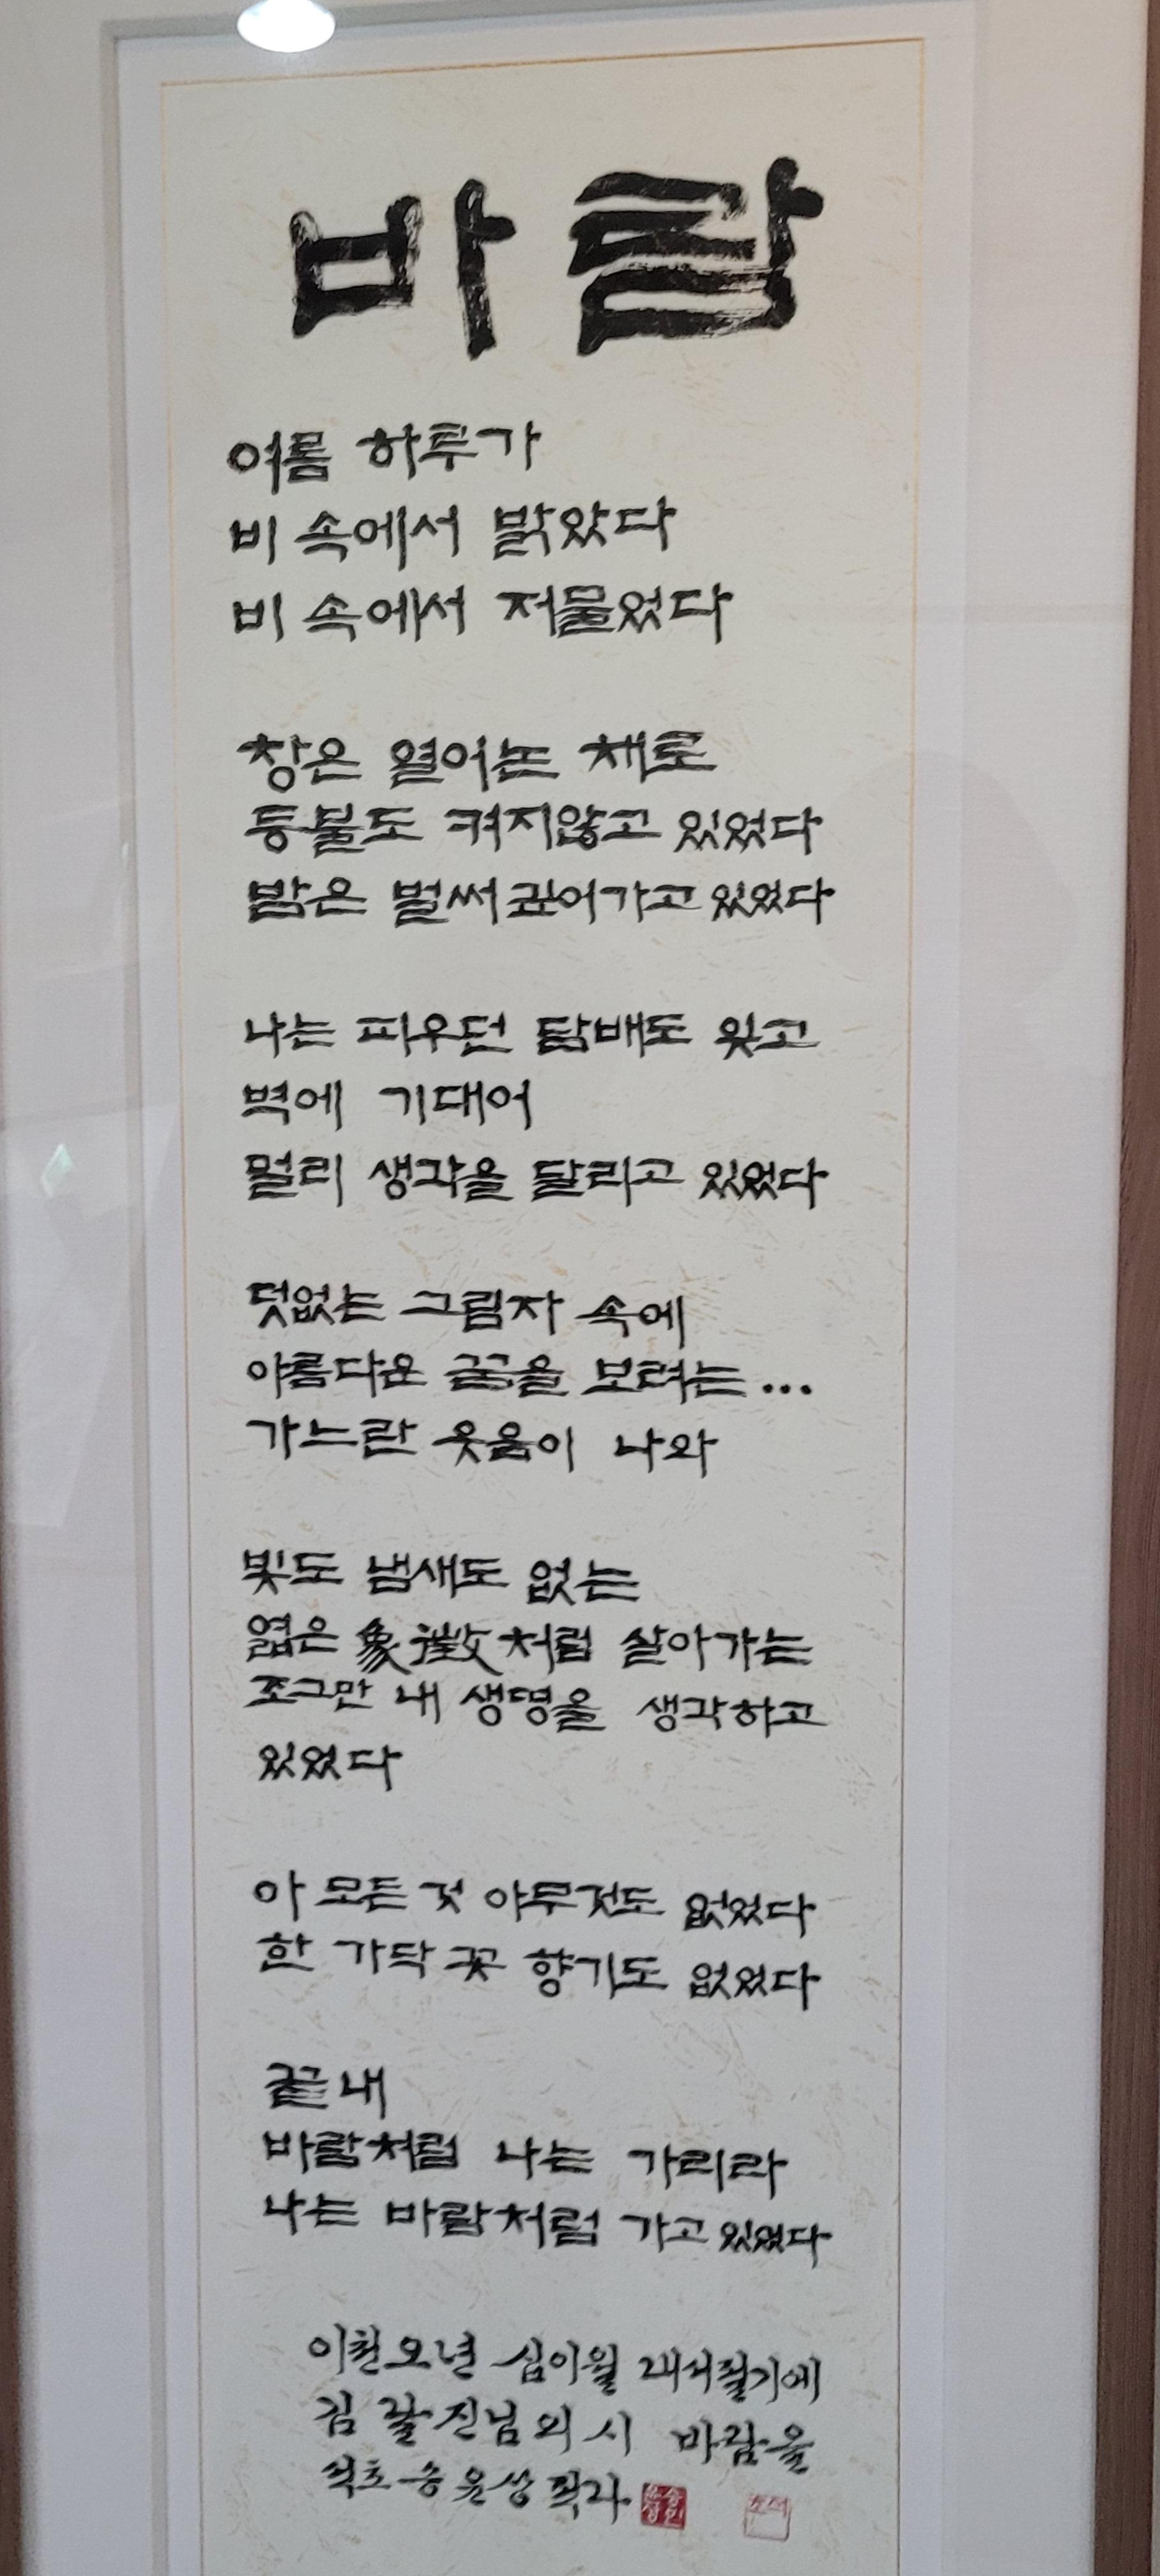 바람
여름 하루가
비 속에서 밝았다
비 속에서 저물었다
창은 열어논 채로
등불도 켜지않고 있었다
밤은 벌써 깊어가고 있었다
나는 피우던 담배도 잊고
벽에 기대어
멀리 생각을 달리고 있었다
덧없는 그림자 속에
아름다운 꿈을 보려는...
가느란 웃음이 나와
빛도 냄새도 없는
엷은 象徵처럼 살아가는
조그만 내 생명을 생각하고
있었다
아 모든 것 아무것도 없었다
한 가닥 꽃 향기도 없었다
끝내
바람처럼 나는 가리라
나는 바람처럼 가고 있었다
이천오년 십이월 대서절기에
김달진님의 시 바람을
석초 송윤성 적다